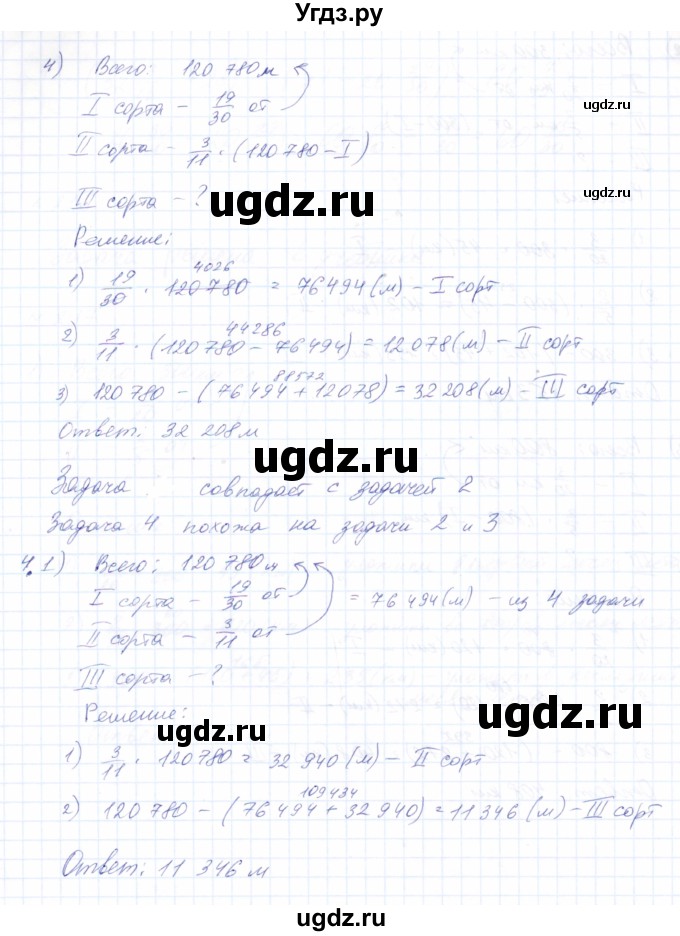 Угдз.ру
4) Всего: 120 780 м
I сорта – 19/30 от
ugdz.ru
II сорта – 3/11 · (120 780 – I)
III сорта – ?
ugdz.ru
ugdz.ru
Решение:
1) 19/30 · 120 780 = 76 494 (м) – I сорт
4026
2) 3/11 · (120 780 – 76 494) = 12 078 (м) – II сорт
44286
3) 120 780 – (76 494 + 12 078) = 32 208 (м) – III сорт
88572
Ответ: 32 208 м
ugdz.ru
Задача совпадает с задачей 2
Задача 4 похожа на задачи 2 и 3
4.1) Всего: 120 780 м
I сорта – 19/30 от = 76 494 (м) – из 4 задачи
II сорта – 3/11 от
III сорта – ?
Решение:
ugdz.ru
ugdz.ru
1) 3/11 · 120 780 = 32 940 (м) – II сорт
2) 120 780 – (76 494 + 32 940) = 11 346 (м) – III сорт
109434
Ответ: 11 346 м
ugdz.ru
ugdz.ru